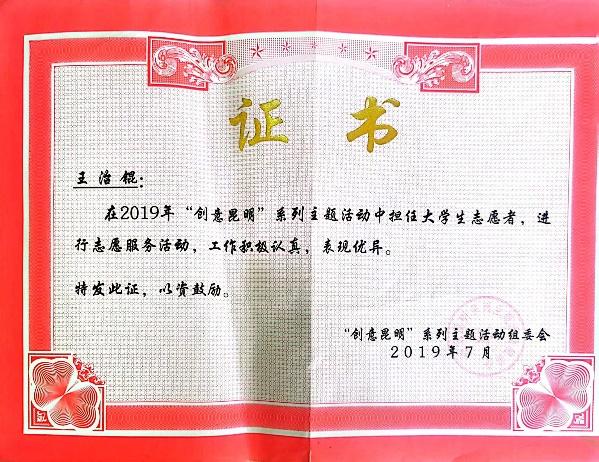 证书
王治锟：
在2019年“创意昆明”系列主题活动中担任大学生志愿者，进
行志愿服务活动，工作积极认真，表现优异。
特发此证，以资鼓励。
“创意昆明”系列主题活动组委会
2019年7月